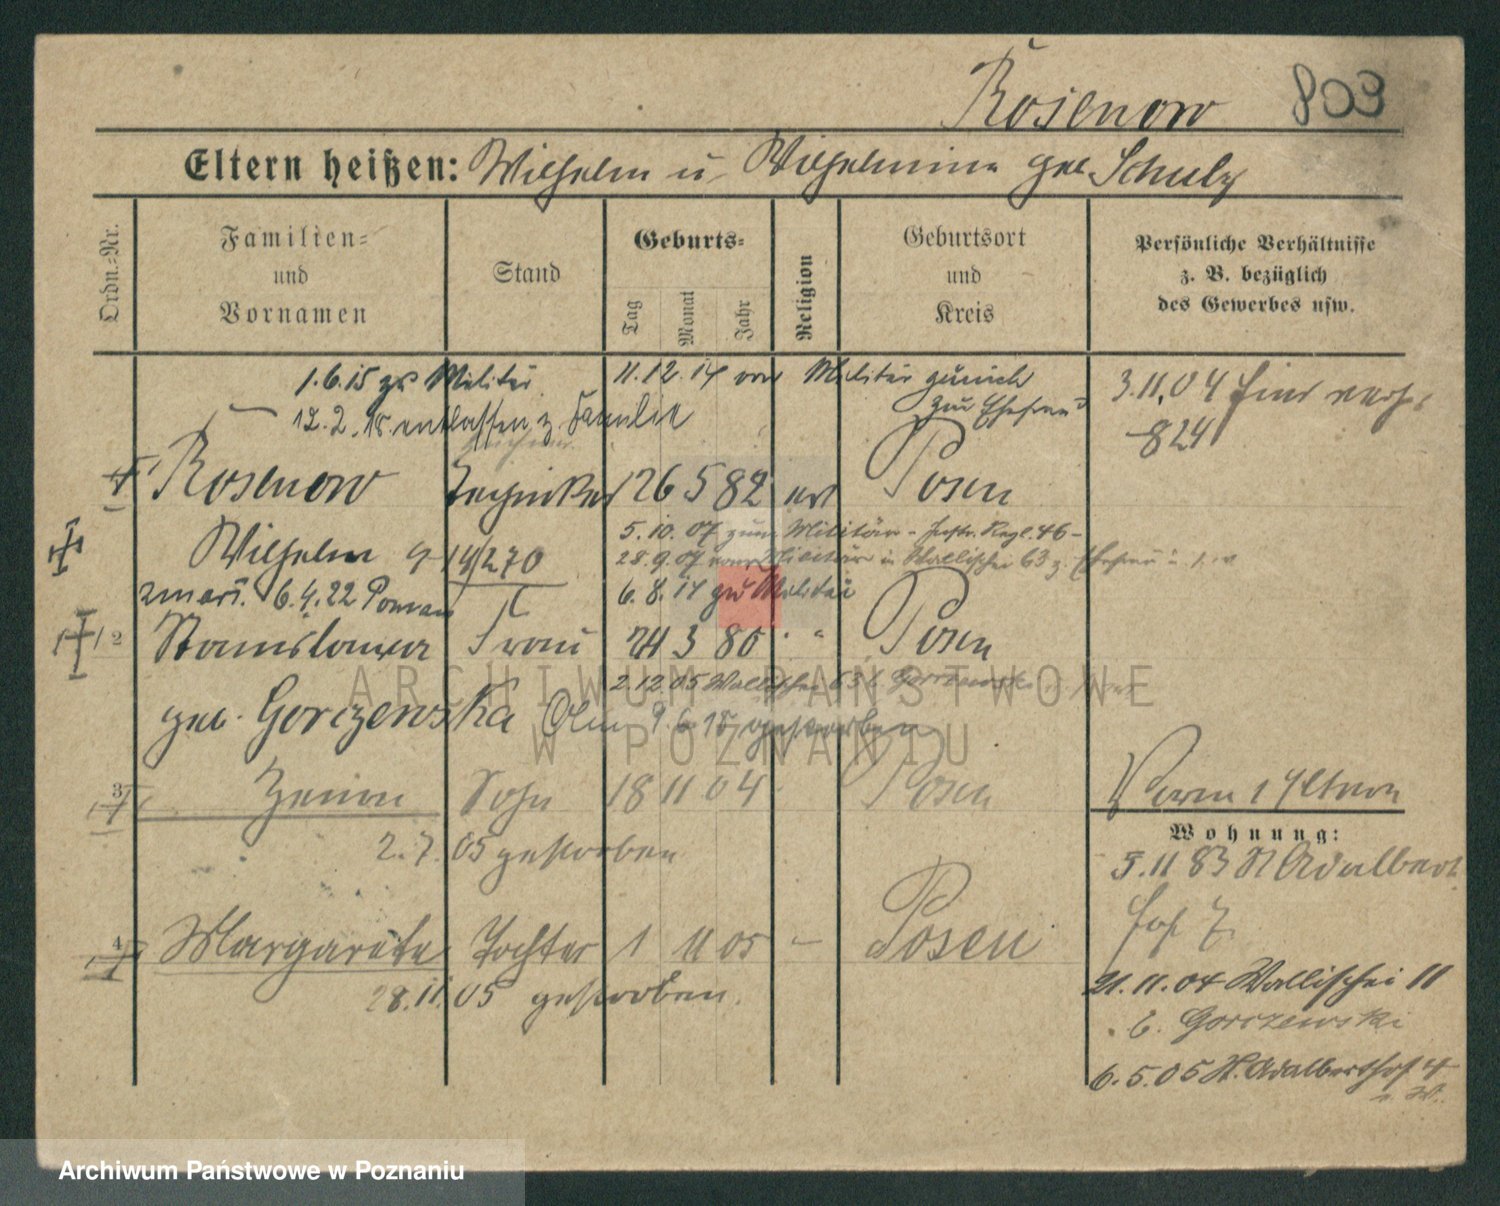 Rosenow 803
Eltern heißen: Wilhelm u. Wilhelmine geb. Schulz
Ordn.=Nr.
Familien=
und
Vornamen
Stand
Geburts=
Tag
Monat
Jahr
Religion
Geburtsort
und
Kreis
Persönliche Verhältnisse
z. B. bezüglich
des Gewerbes usw.
1.6.15 zu Militär 11.12.14 vom Militär zurück
zur Ehefrau
12.2.15 entlassen z. Familie
3.11.04
824
1 Rosenow Techniker 26 5 82 Posen
Wilhelm 9 14/270
5.10.07 zum Militär - Regt. 46 -
28.9.07 vom Militär n Wallischei 63 z. Ehefrau
zmarł. 6.4.22 Poznań
6.8.14 zu Militär
2 Stanislawa Frau 24 3 80 " Posen
2.12.05 Wallischei 63
geb. Gorczewska 9.6.18 gestorben
3 Zenon Sohn 18 11 04 Posen
2.7.05 gestorben
4 Margarete Tochter 1 11 05 - Posen
28.11.05 gestorben.
Wohnung:
5.11 83 St Adalbert
hof 7.
21.11.04 Wallischei 11
b. Gorczewski
6.5.05 St. Adalberthof 4
ARCHIWUM PAŃSTWOWE
W POZNANIU
Archiwum Państwowe w Poznaniu